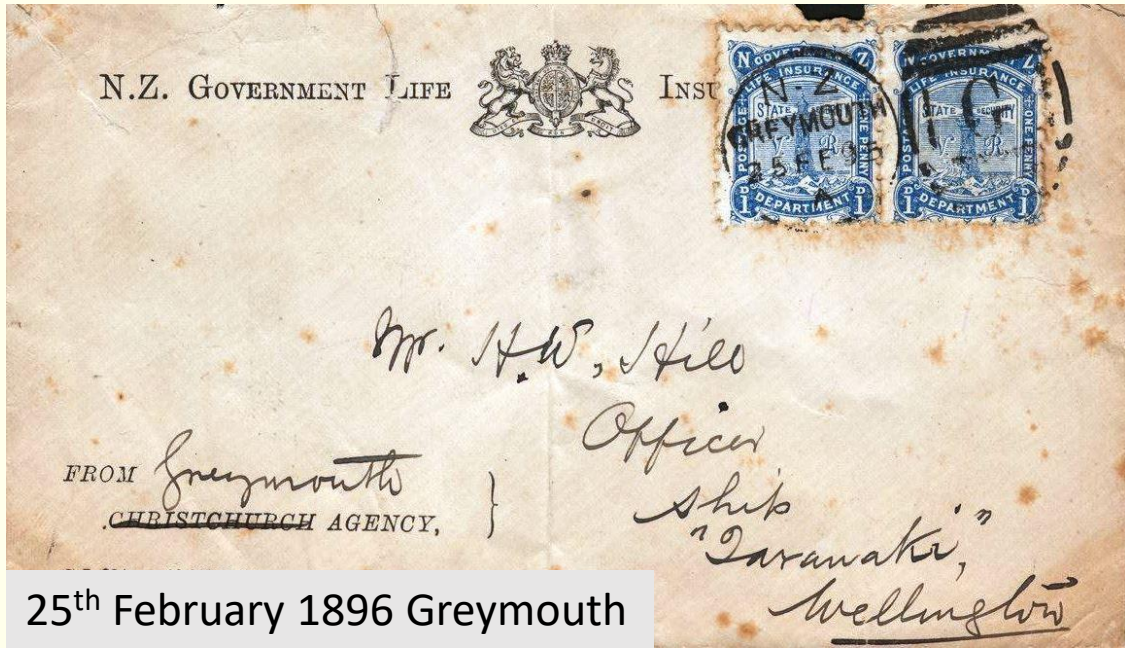 N.Z. GOVERNMENT LIFE INSU
N GOVERNMENT Z
LIFE INSURANCE
POSTAGE
ONE PENNY
STATE
V R
D 1 DEPARTMENT D 1
N GOVERNM Z
LIFE INSURANCE
POSTAGE
ONE PENNY
STATE SECURITY
V R
D 1 DEPARTMENT D 1
N.Z
GREYMOUTH
25 FE 96
A
Mr. H.W, Hill
Officer
Ship
"Taranaki",
Wellington
FROM Greymouth
CHRISTCHURCH AGENCY,
25th February 1896 Greymouth